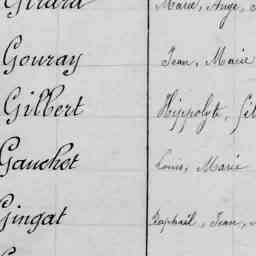 Girard Marie, Ange,
Gouray Jean, Marie
Gilbert Hippolyte,
Gauchot Louis, Marie
Gingat Raphaël, Jean,